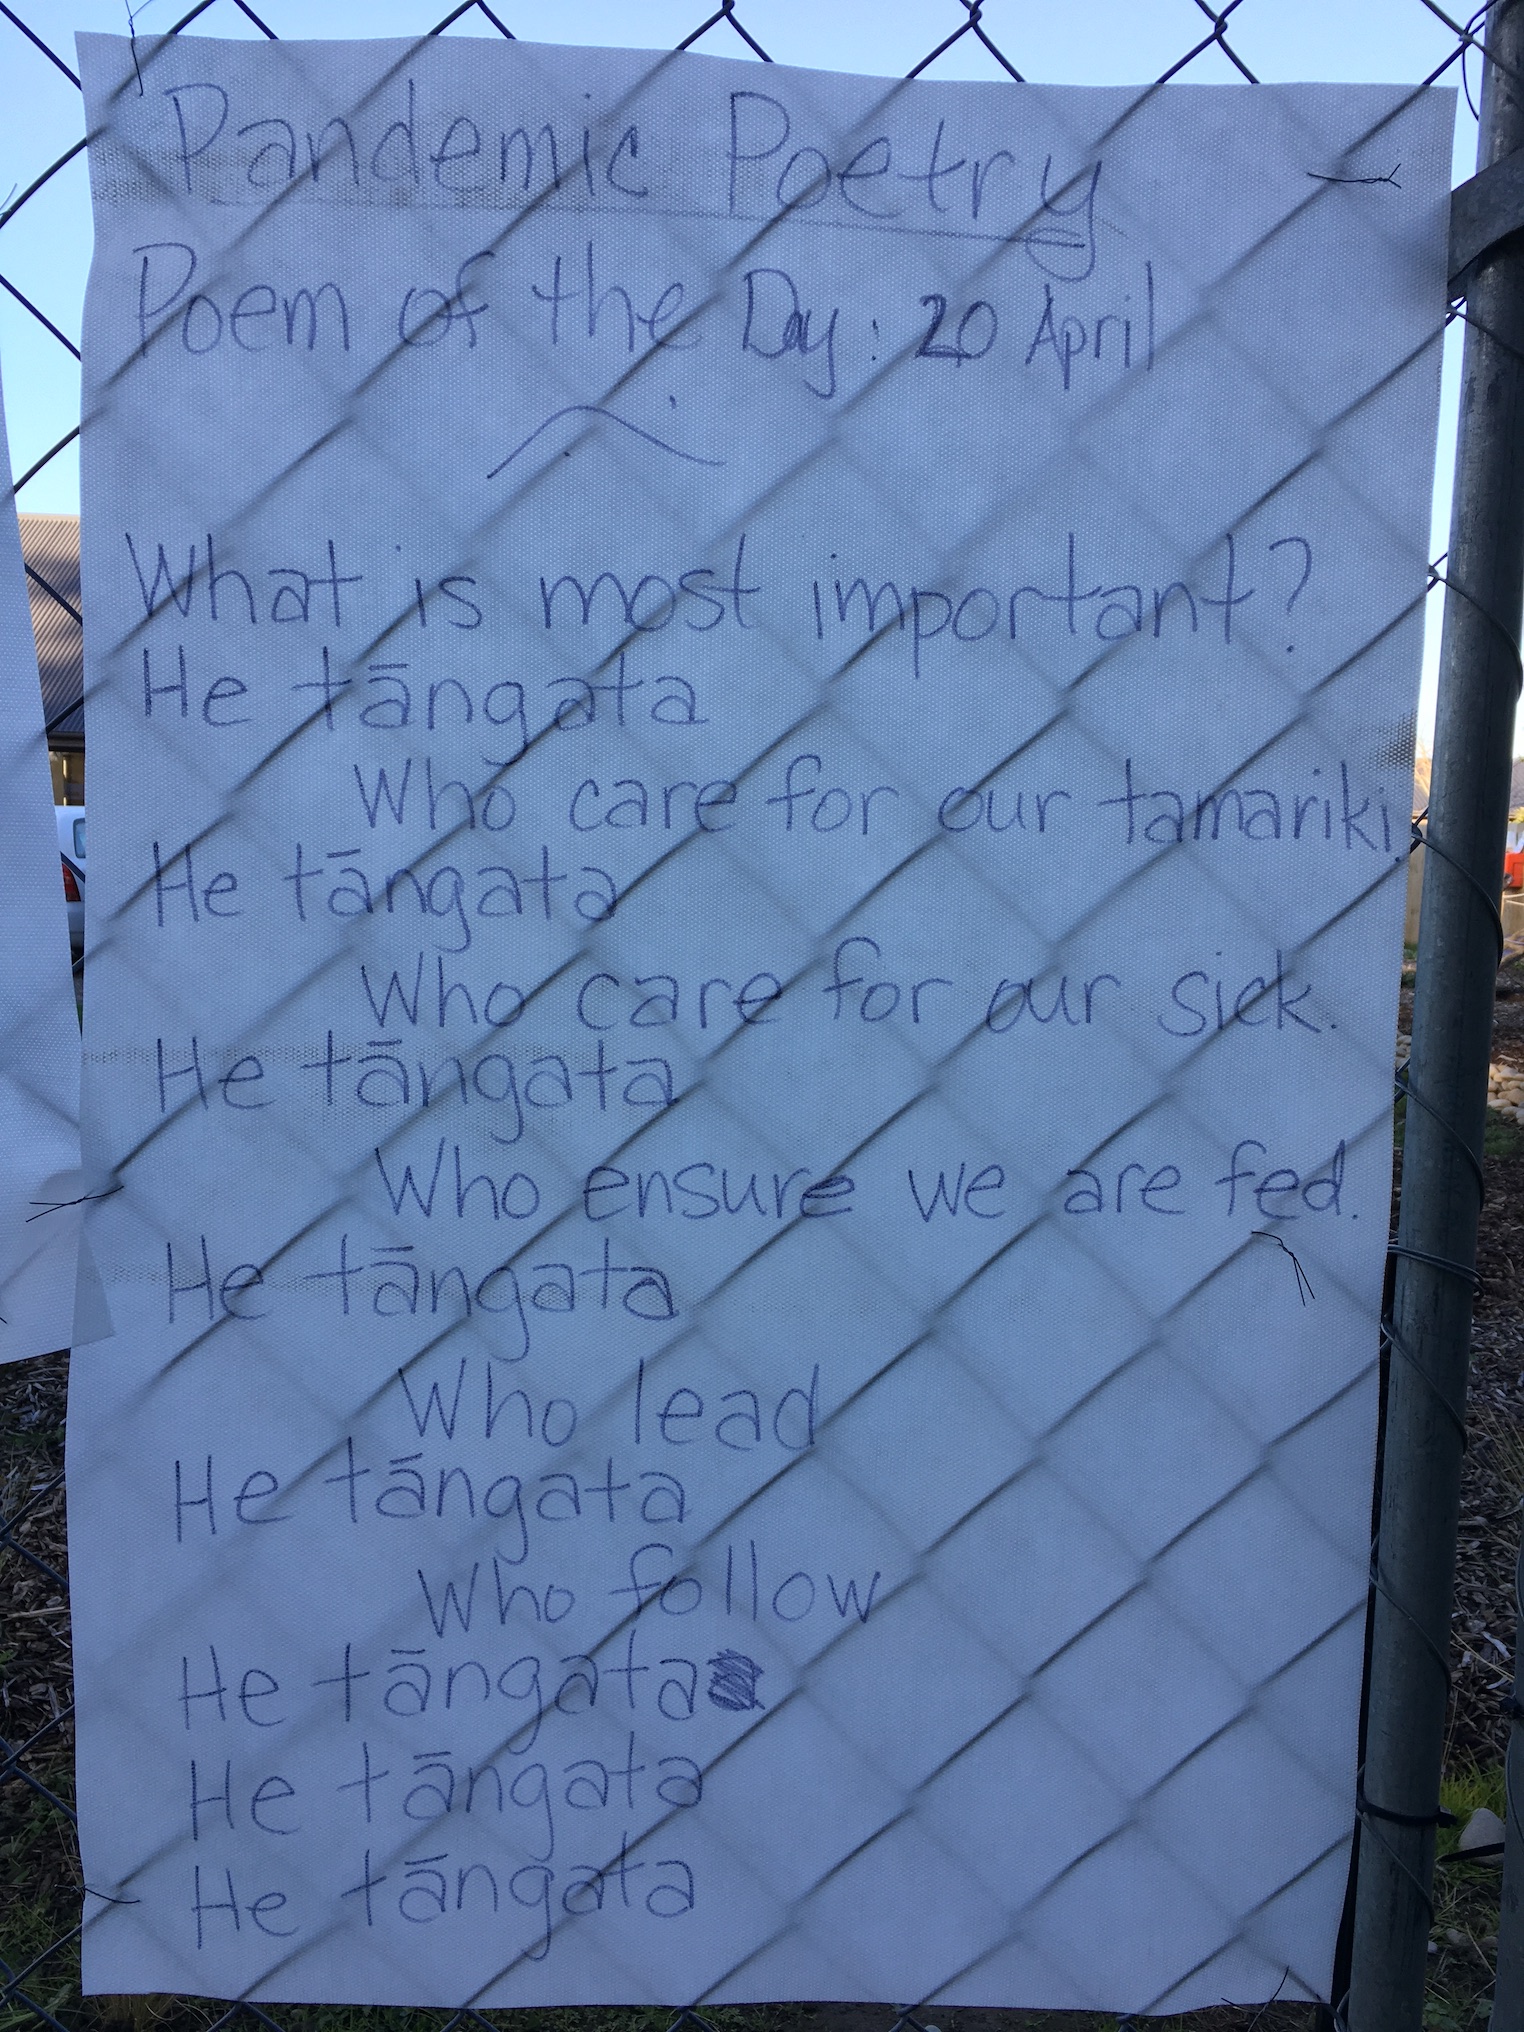 Pandemic Poetry
Poem of the Day: 20 April
What is most important?
He tāngata
Who care for our tamariki.
He tāngata
Who care for our sick.
He tāngata
Who ensure we are fed.
He tāngata
Who lead
He tāngata
Who follow
He tāngata
He tāngata
He tāngata